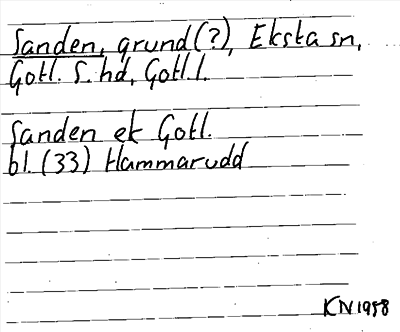 Sanden, grund(?), Eksta sn,
Gotl. S. hd, Gotl. l.
Sanden ek Gotl.
bl. (33) Hammarudd
KN 1958